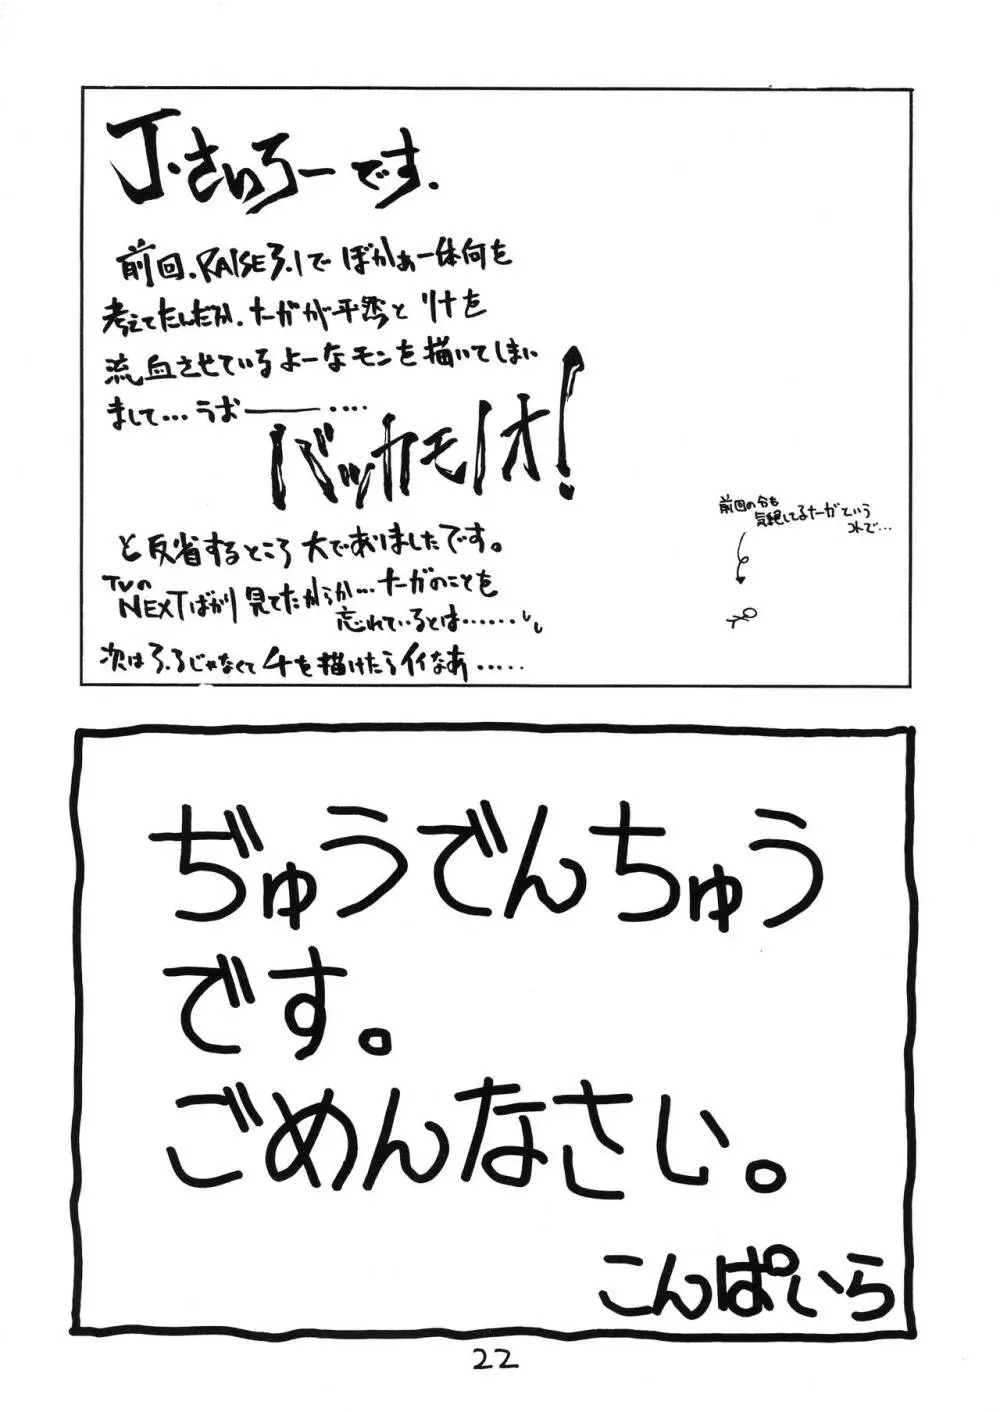 J・さいろーです.
前回.RAISE3.1で ぼかぁ一体何を
考えてたんだか.たーがが平然と リナを
流血させているよーなモンを描いてしまい
まして…うお――――....
バッカモノオ!
と反省するところ 大でありましたです。
TVの
NEXTばかり見てたからか…たーがのことを
忘れているとは……
次は3.3じゃなくて 4を描けたらイイなあ.....
前回の分も
気絶してるたーがという
コトで…
ぢゅうでんちゅう
です。
ごめんなさい。
こんぱいら
22